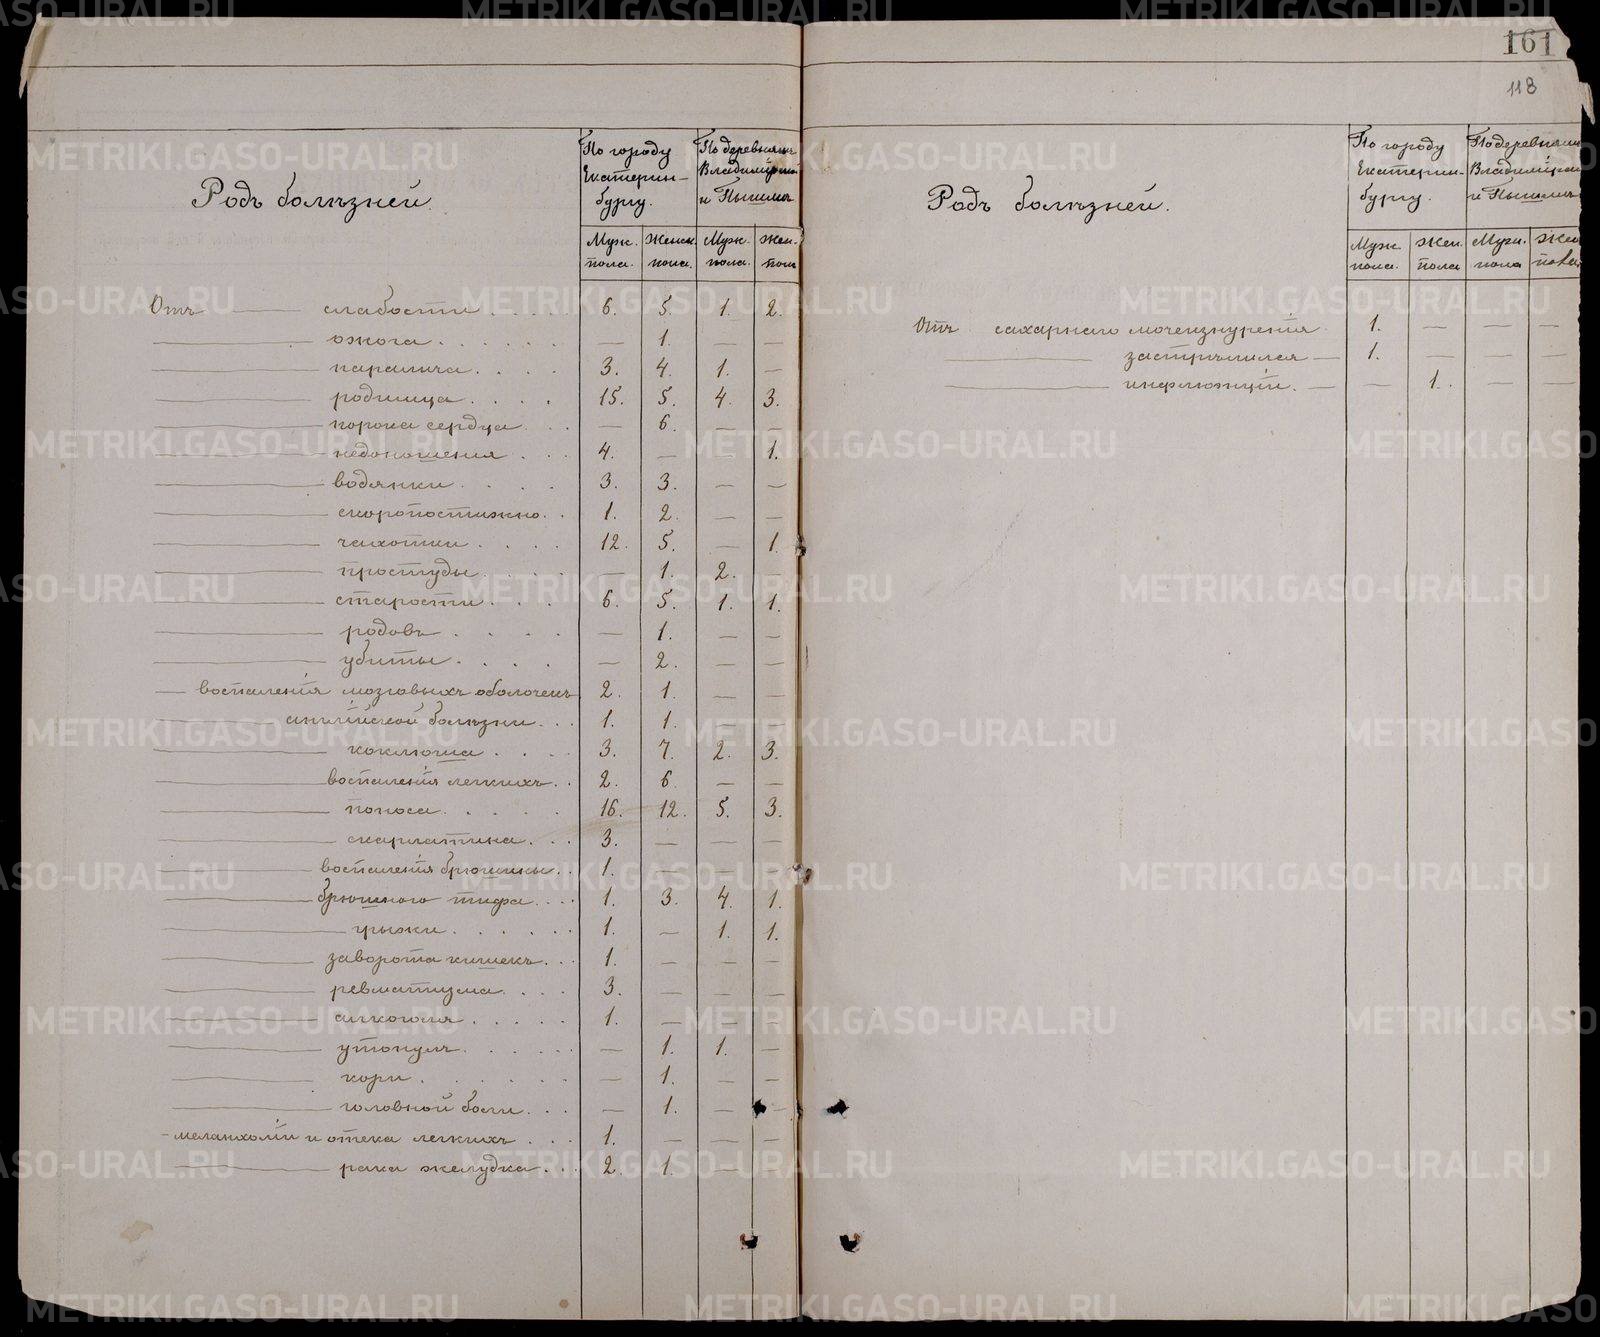 161
118
Родъ болѣзней.
По городу Екатерин-бургу.
По деревнямъ Владимірской и Пышмѣ
Муж. пола.
Женск. пола.
Муж. пола.
Жен. пола
Отъ слабости . . . . 6. 5. 1. 2.
ожога . . . . . . — 1.
паралича . . . . 3. 4. 1. —
родимца . . . . 15. 5. 4. 3.
порока сердца . . . — 6. — —
недоношенія . . . 4. — — 1.
водянки . . . . 3. 3. — —
скоропостижно . . 1. 2. — —
чахотки . . . . 12. 5. — 1.
простуды . . . . — 1. 2. —
старости . . . . 6. 5. 1. 1.
родовъ . . . . — 1. — —
убиты . . . . — 2. — —
— воспаленія мозговыхъ оболочекъ 2. 1. — —
англійской болѣзни . . . 1. 1. — —
коклюша . . . . 3. 7. 2. 3.
воспаленія легкихъ . . 2. 6 — —
поноса . . . . . 16. 12. 5. 3.
скарлатина . . . 3. — — —
воспаленія брюшины . . 1. — — —
брюшного тифа . . . . 1. 3. 4. 1.
грыжи . . . . . . 1. — 1. 1.
заворота кишекъ . . . 1. — — —
ревматизма . . . . 3. — — —
алкоголя . . . . . 1. — — —
утонулъ . . . . . — 1. 1. —
кори . . . . . . — 1. — —
головной боли . . . — 1. —
– меланхоліи и отека легкихъ . . . 1. — — —
рака желудка . . . 2. 1. —
Родъ болѣзней.
По городу Екатерин-бургу.
По деревнямъ Владимірской и Пышмѣ
Муж. пола.
Жен. пола
Муж. пола
Жен. пола
Отъ сахарнаго мочеизнуренія 1. — — —
застрѣлился — 1. — — —
инфлюэнціи. — — 1. — —
METRIKI.GASO-URAL.RU